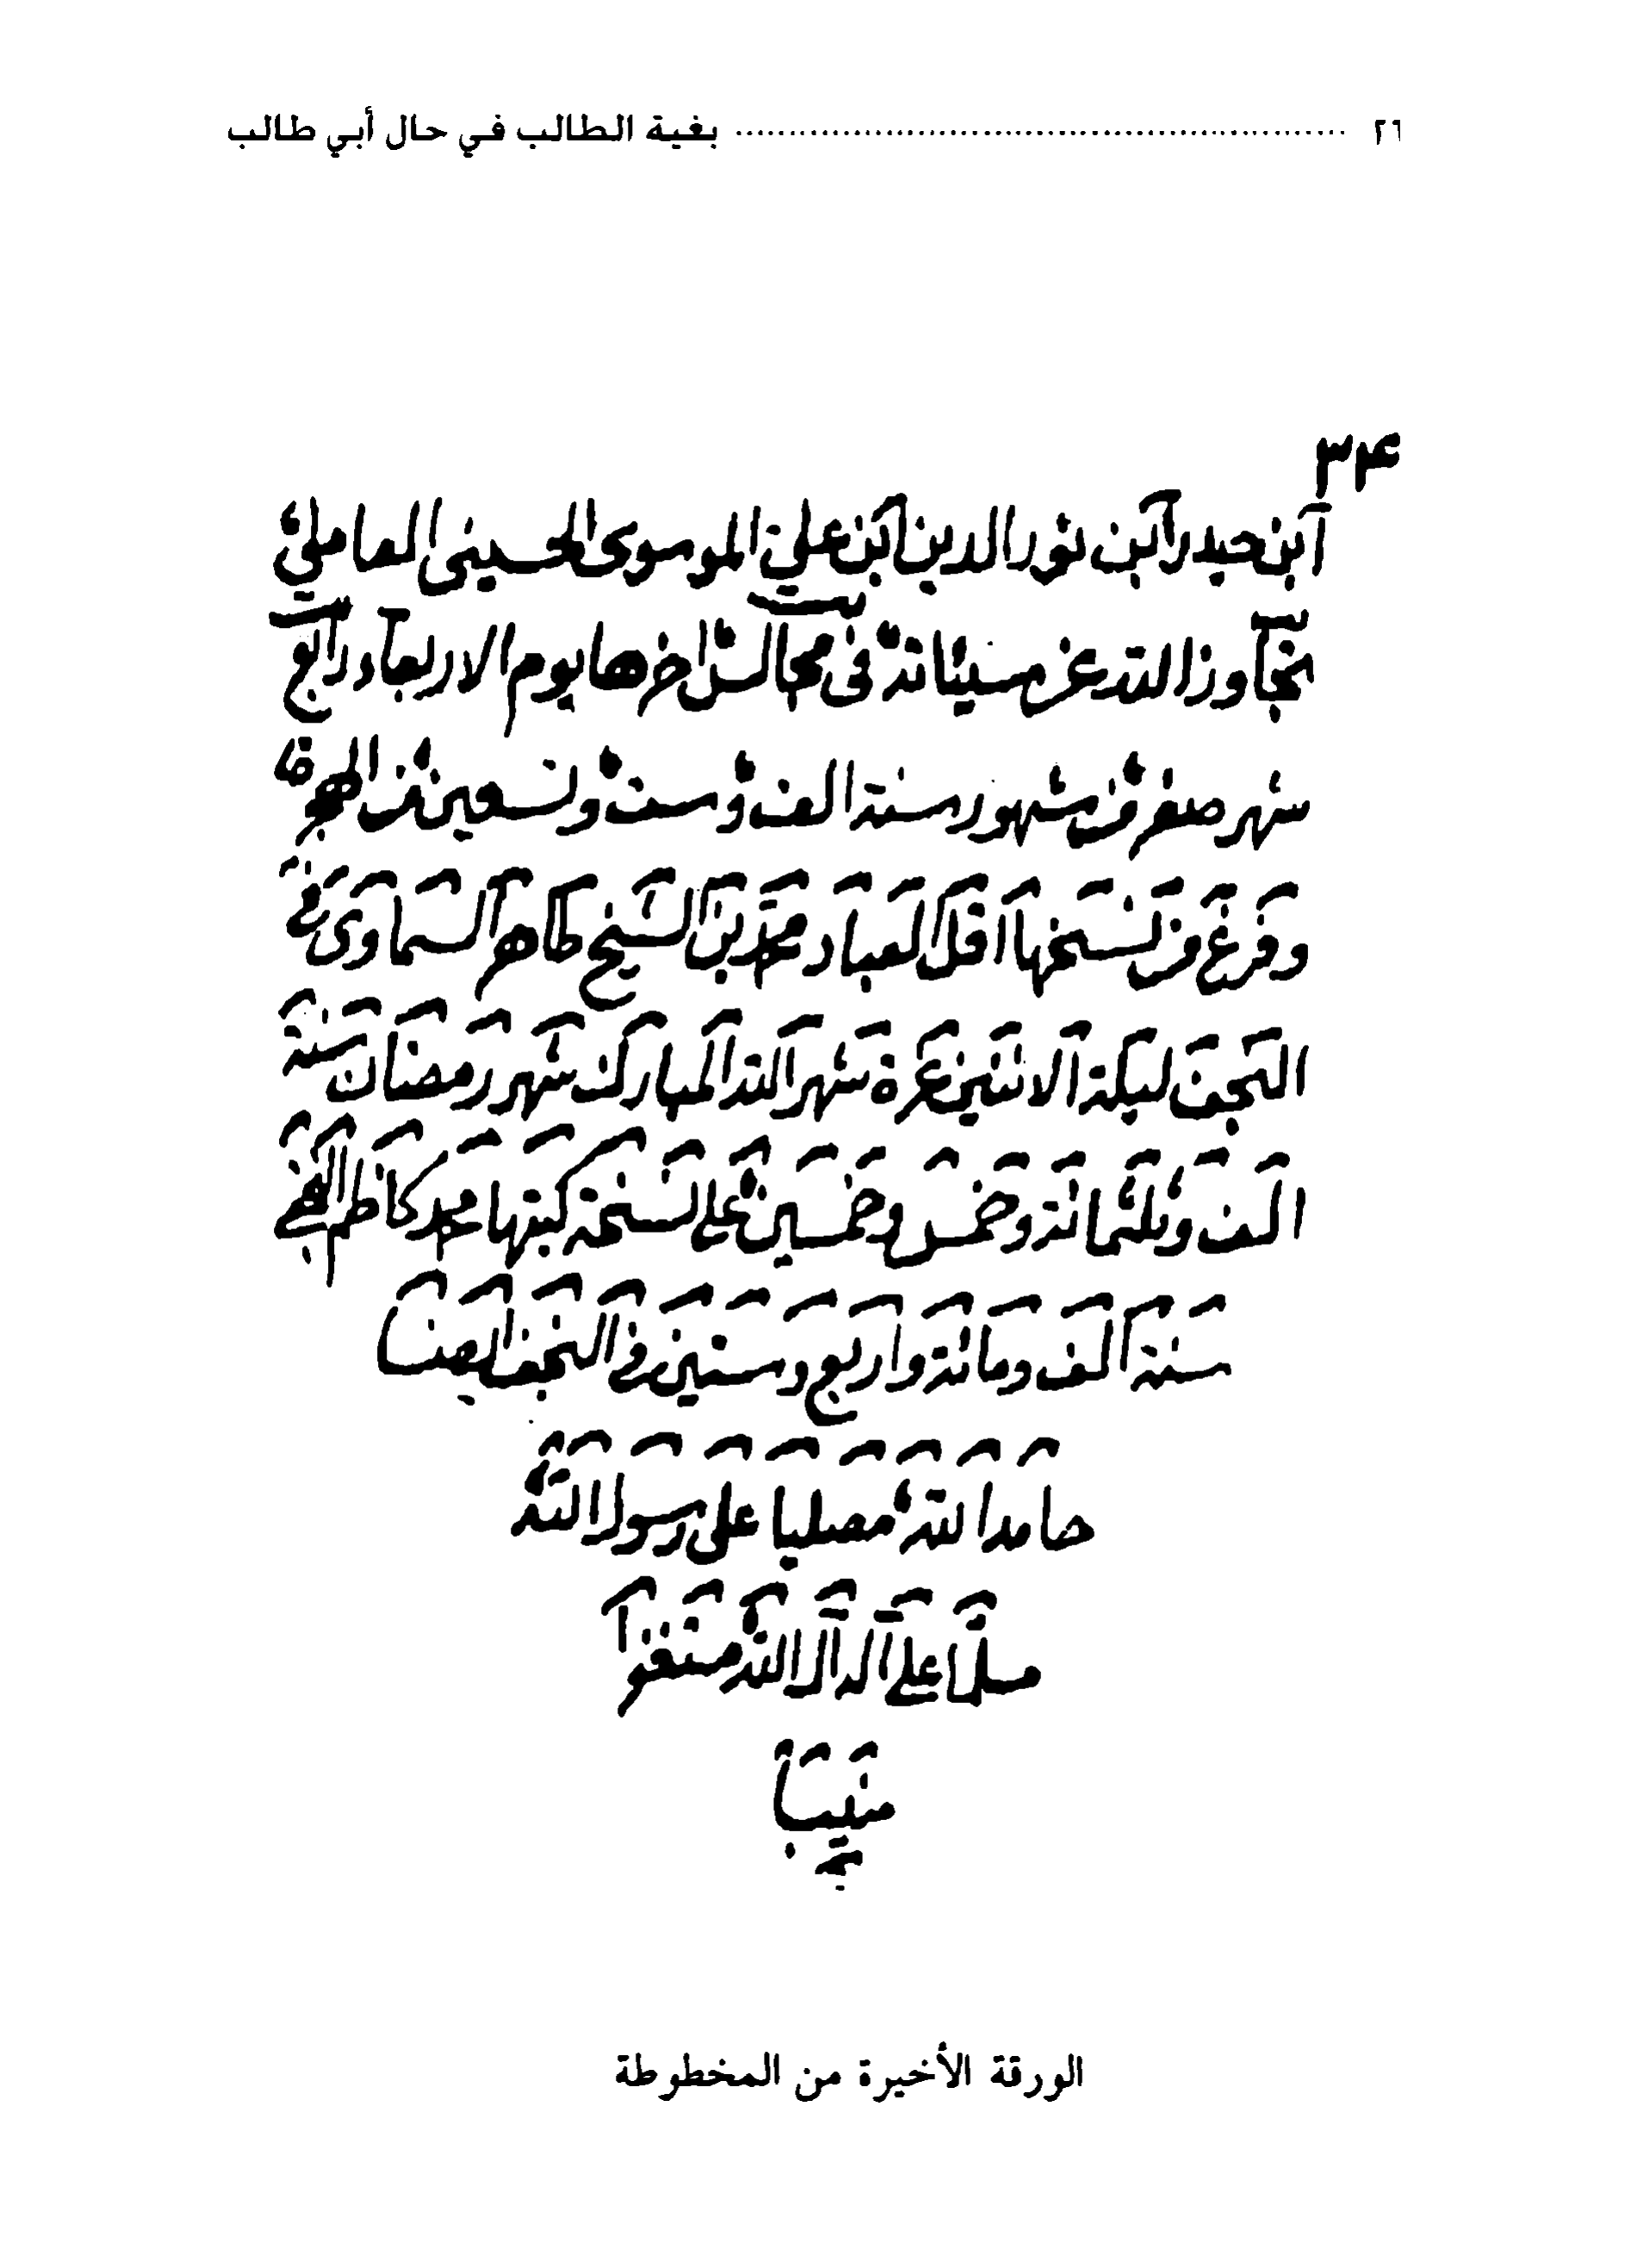 ٢٦ ........ بغية الطالب في حال أبي طالب
٣٤
ابن حيدر ابن نور الدين ابن علي الموسوي الحسيني العاملي
تجاوز الله عن سيئاته في مجالس اخرها يوم الاربعاء رابع
شهر صفر من شهور سنة الف وست وتسعين من الهجرة
وفرغ من نسخها اقل العباد محمد بن الشيخ طاهر السماوي في
النجف ليلة الاثنين غرة شهر الله المبارك شهر رمضان سنة
الف وثلثمائة وخمس وخمسين على نسخة كتبها محمد كاظم النجفي
سنة الف ومائة واربع وستين في النجف ايضا
حامدا لله مصليا على رسول الله
مسلما على آله آل الله مستغفرا
منيبا
الورقة الأخيرة من المخطوطة